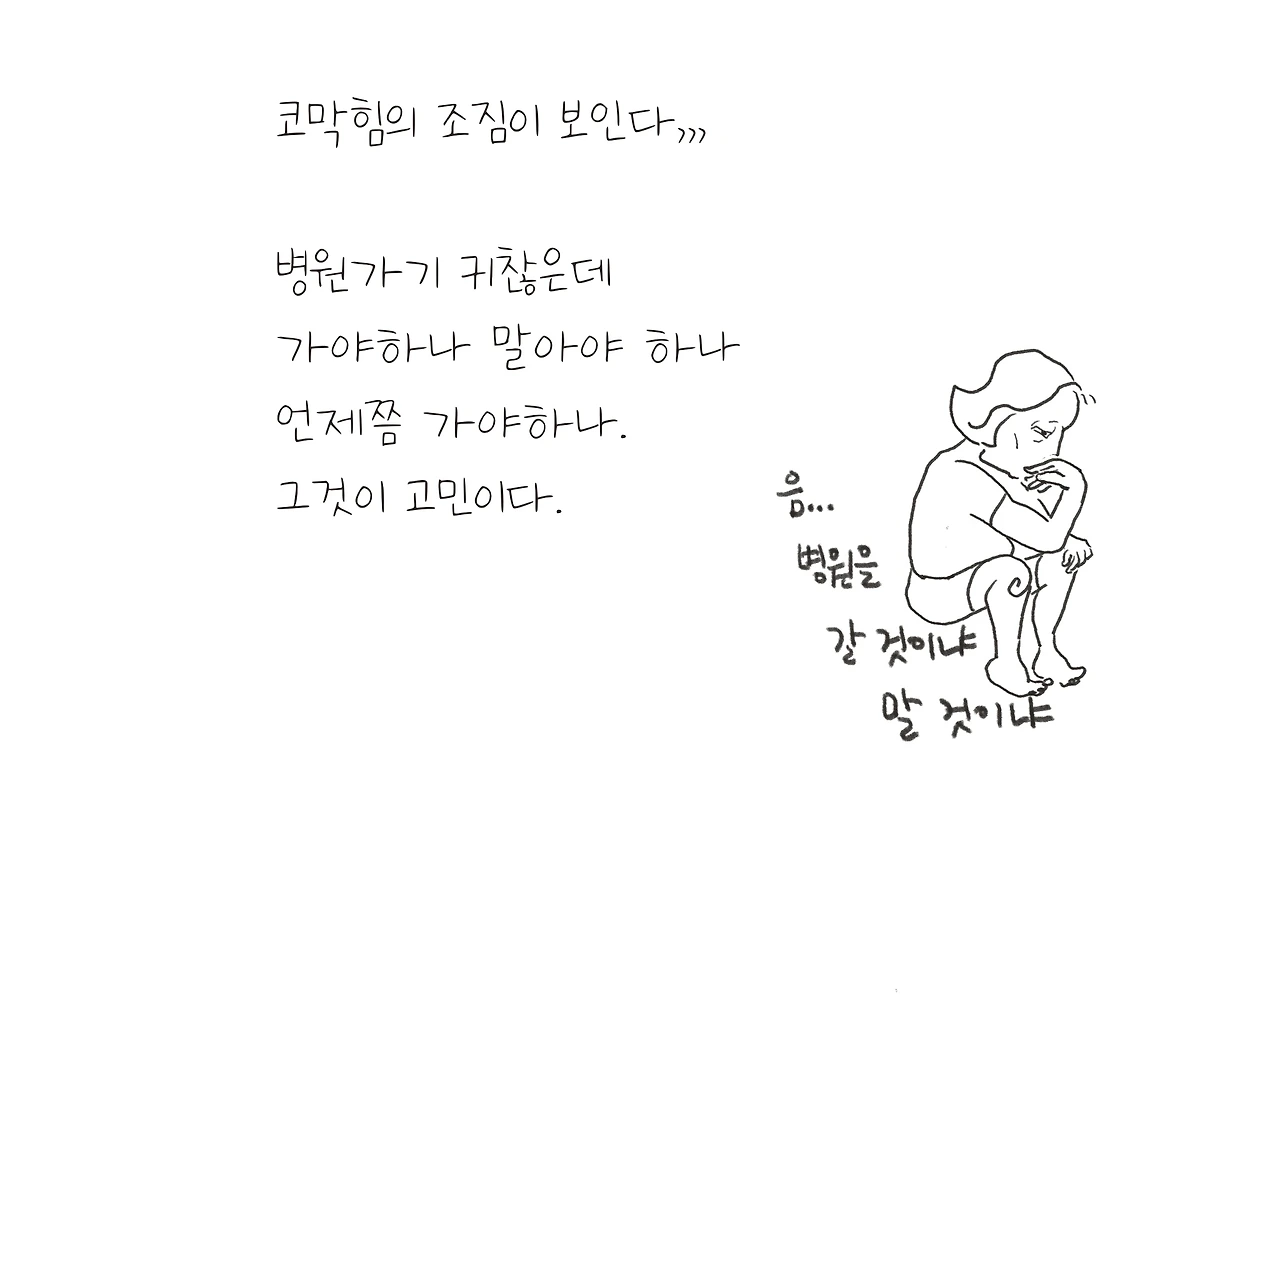 코막힘의 조짐이 보인다,,,
병원가기 귀찮은데
가야하나 말아야 하나
언제쯤 가야하나.
그것이 고민이다.
음...
병원을
갈 것이냐
말 것이냐